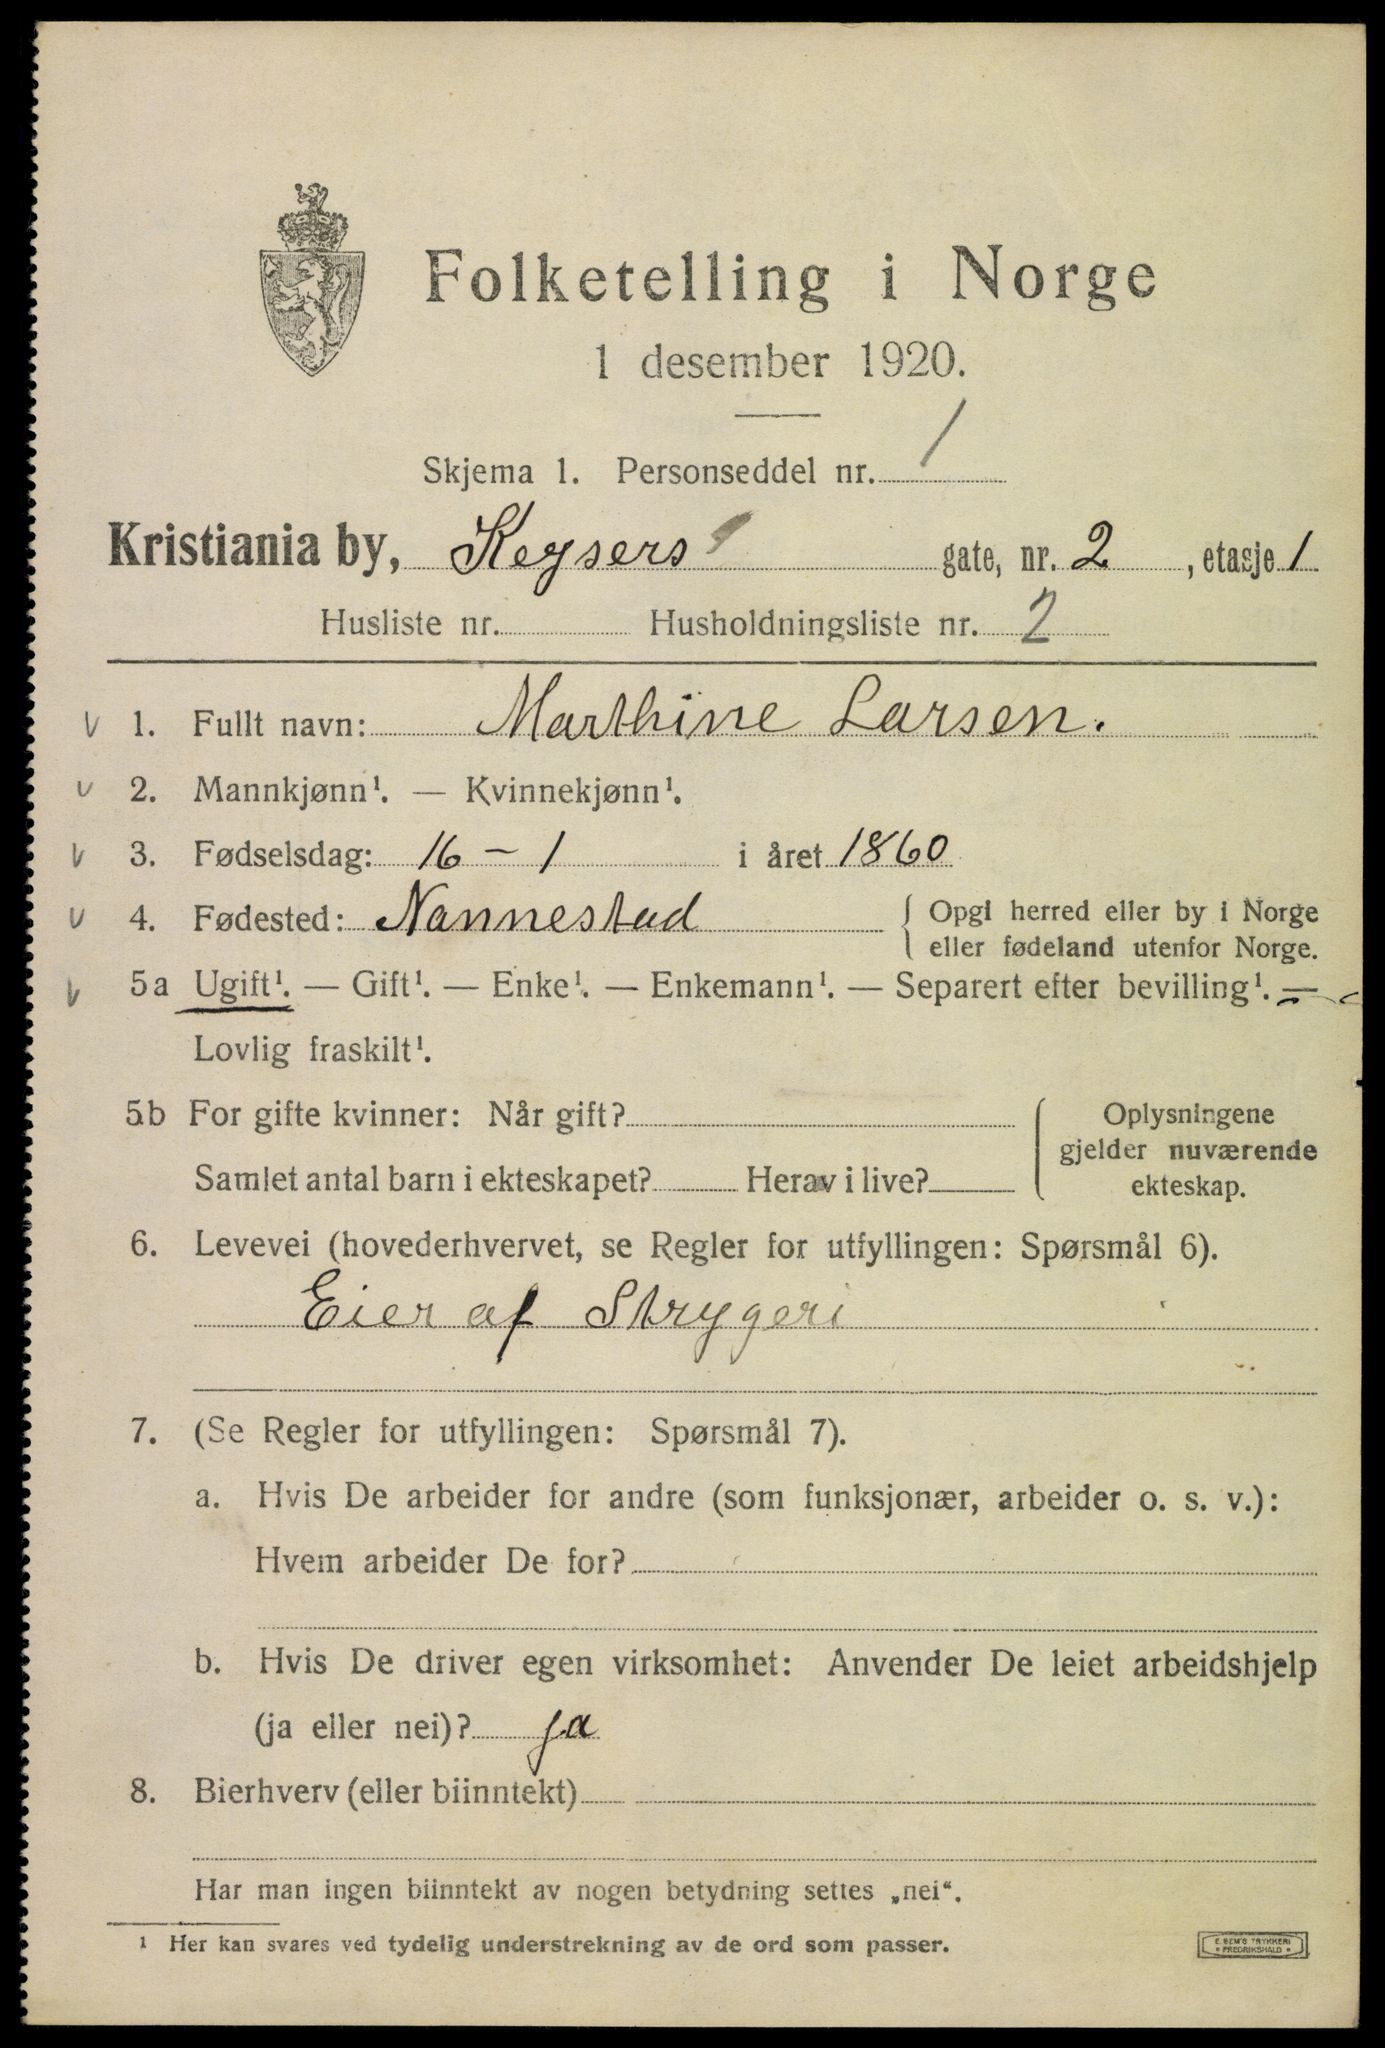 Folketelling i Norge
1 desember 1920.
Skjema 1. Personseddel nr. 1
Kristiania by, Keysers gate, nr. 2, etasje 1
Husliste nr. Husholdningsliste nr. 2
v 1. Fullt navn: Marthine Larsen.
v 2. Mannkjønn¹. — Kvinnekjønn¹.
v 3. Fødselsdag: 16 – 1 i året 1860
v 4. Fødested: Nannestad { Opgi herred eller by i Norge
eller fødeland utenfor Norge.
v 5a Ugift¹. — Gift¹. — Enke¹. — Enkemann¹. — Separert efter bevilling¹. —
Lovlig fraskilt¹.
5b For gifte kvinner: Når gift? { Oplysningene
gjelder nuværende
Samlet antal barn i ekteskapet? Herav i live? ekteskap.
6. Levevei (hovederhvervet, se Regler for utfyllingen: Spørsmål 6).
Eier af Strygeri
7. (Se Regler for utfyllingen: Spørsmål 7).
a. Hvis De arbeider for andre (som funksjonær, arbeider o. s. v.):
Hvem arbeider De for?
b. Hvis De driver egen virksomhet: Anvender De leiet arbeidshjelp
(ja eller nei)? ja
8. Bierhverv (eller biinntekt)
Har man ingen biinntekt av nogen betydning settes „nei“.
¹ Her kan svares ved tydelig understrekning av de ord som passer.
E. SEM'S TRYKKERI
• FREDRIKSHALD •